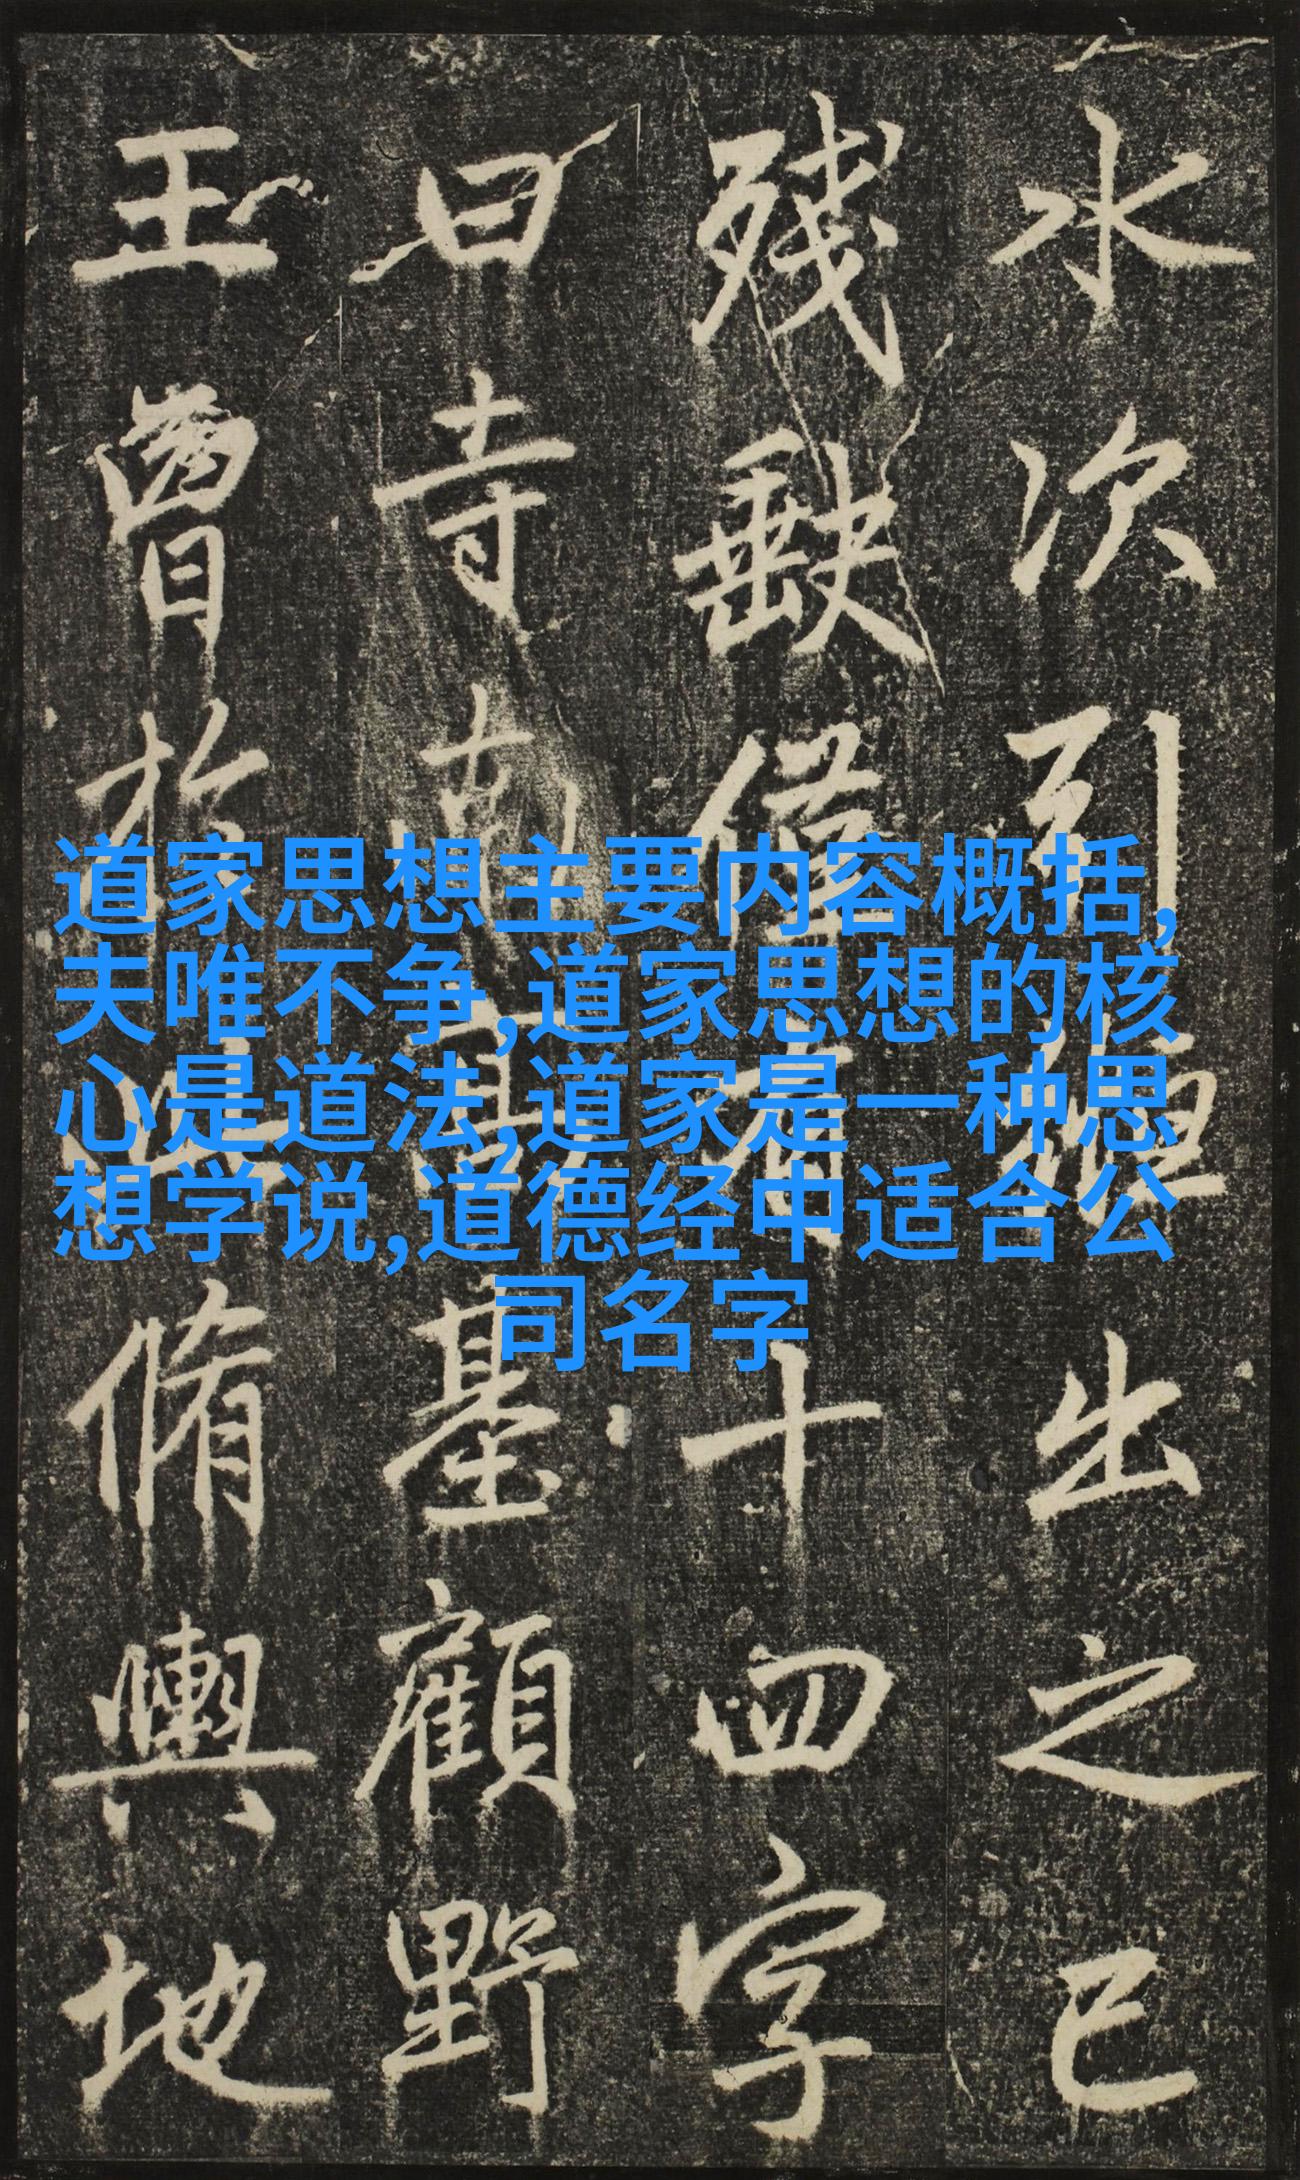 水次引出之已
殘缺僅十四字
曰寺南高基顧野
王曾於此脩輿地
道家思想主要内容概括,
夫唯不争,道家思想的核
心是道法,道家是一种思
想学说,道德经中适合公
司名字